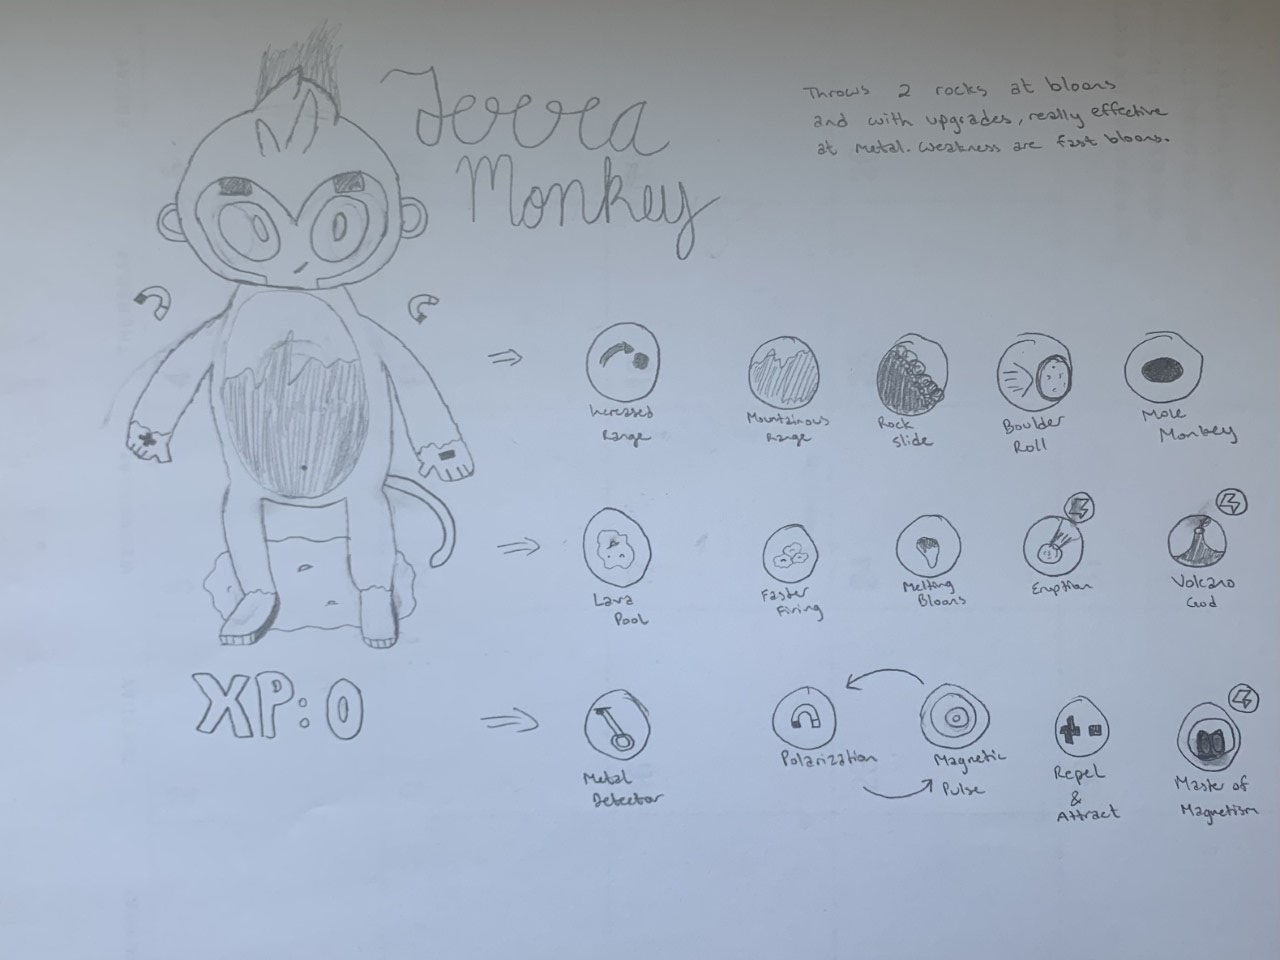 Terra
Monkey
Throws 2 rocks at bloons
and with upgrades, really effective
at Metal. Weakness are fast bloons.
Increased
Range
Mountainous
Range
Rock
Slide
Boulder
Roll
Mole
Monkey
Lava
Pool
Faster
Firing
Melting
Bloons
Eruption
Volcano
God
XP: 0
Metal
Detector
Polarization
Magnetic
Pulse
Repel
&
Attract
Master of
Magnetism